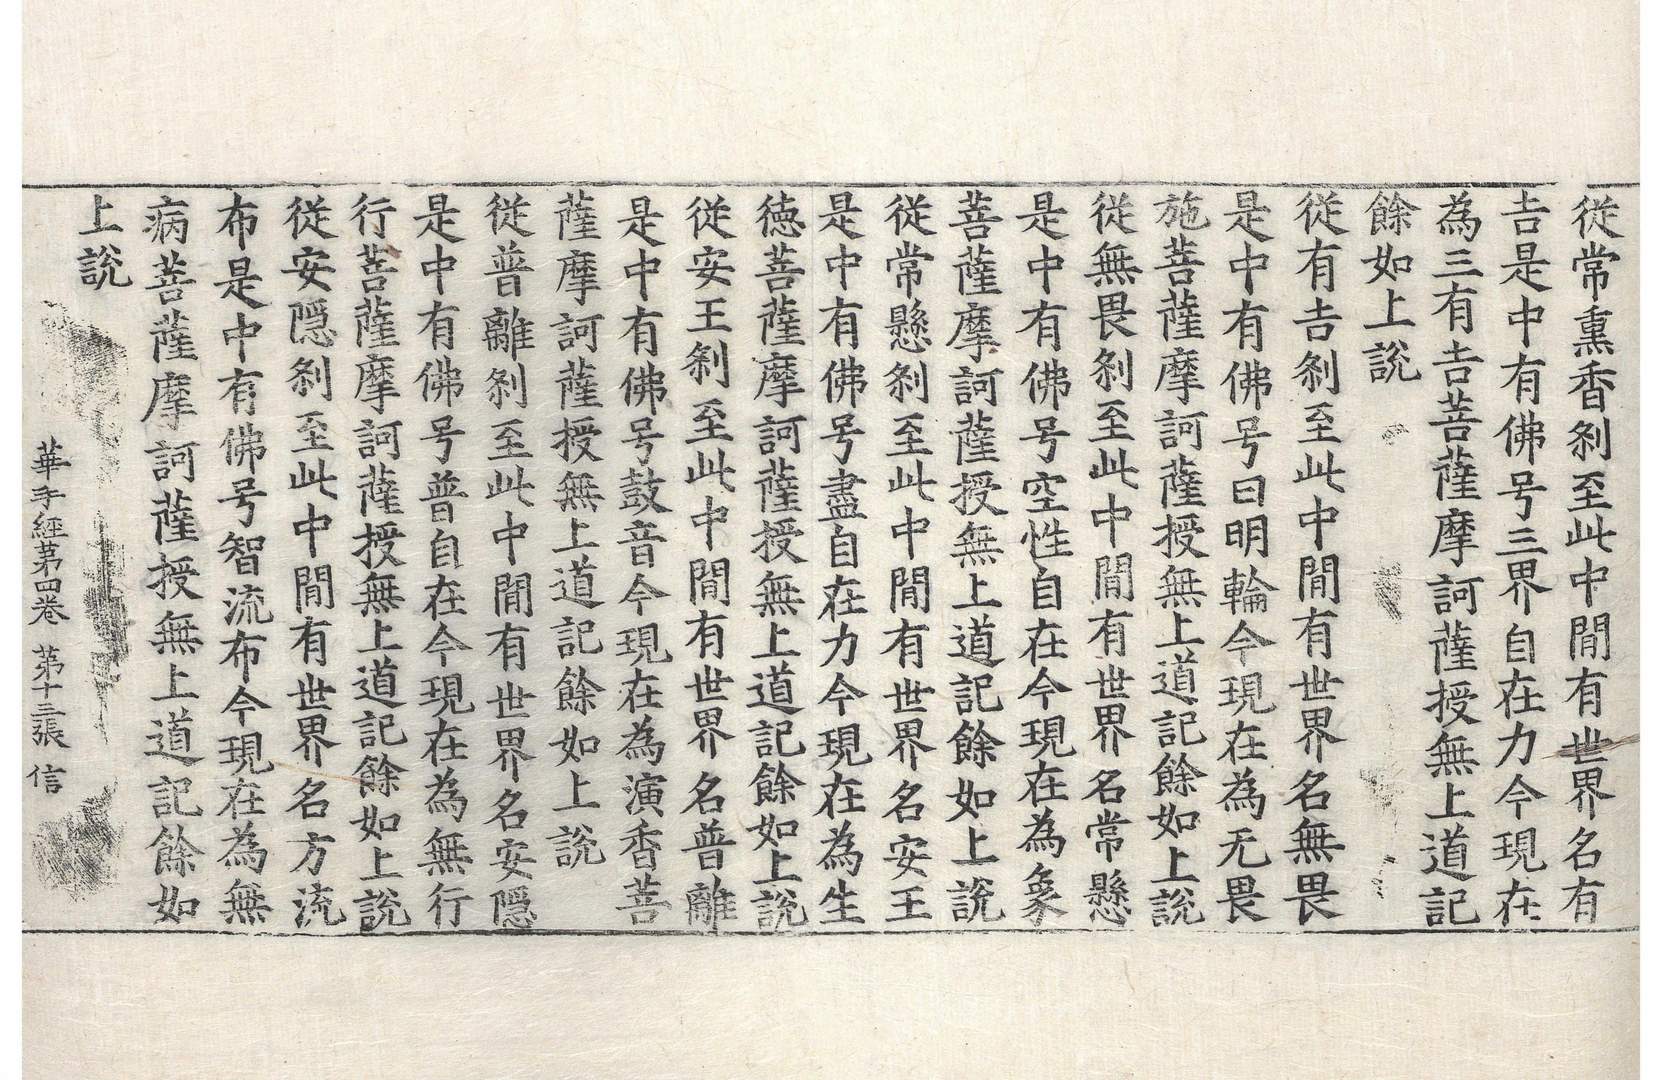 從常熏香刹至此中閒有世界名有
吉是中有佛号三界自在力今現在
為三有吉菩薩摩訶薩授無上道記
餘如上說
從有吉刹至此中閒有世界名無畏
是中有佛号曰明輪今現在為无畏
施菩薩摩訶薩授無上道記餘如上說
從無畏刹至此中閒有世界名常懸
是中有佛号空性自在今現在為象
菩薩摩訶薩授無上道記餘如上說
從常懸刹至此中閒有世界名安王
是中有佛号盡自在力今現在為生
德菩薩摩訶薩授無上道記餘如上說
從安王刹至此中閒有世界名普離
是中有佛号鼓音今現在為演香菩
薩摩訶薩授無上道記餘如上說
從普離刹至此中閒有世界名安隠
是中有佛号普自在今現在為無行
行菩薩摩訶薩授無上道記餘如上說
從安隠刹至此中閒有世界名方流
布是中有佛号智流布今現在為無
病菩薩摩訶薩授無上道記餘如
上說
華手經第四卷 第十三張 信